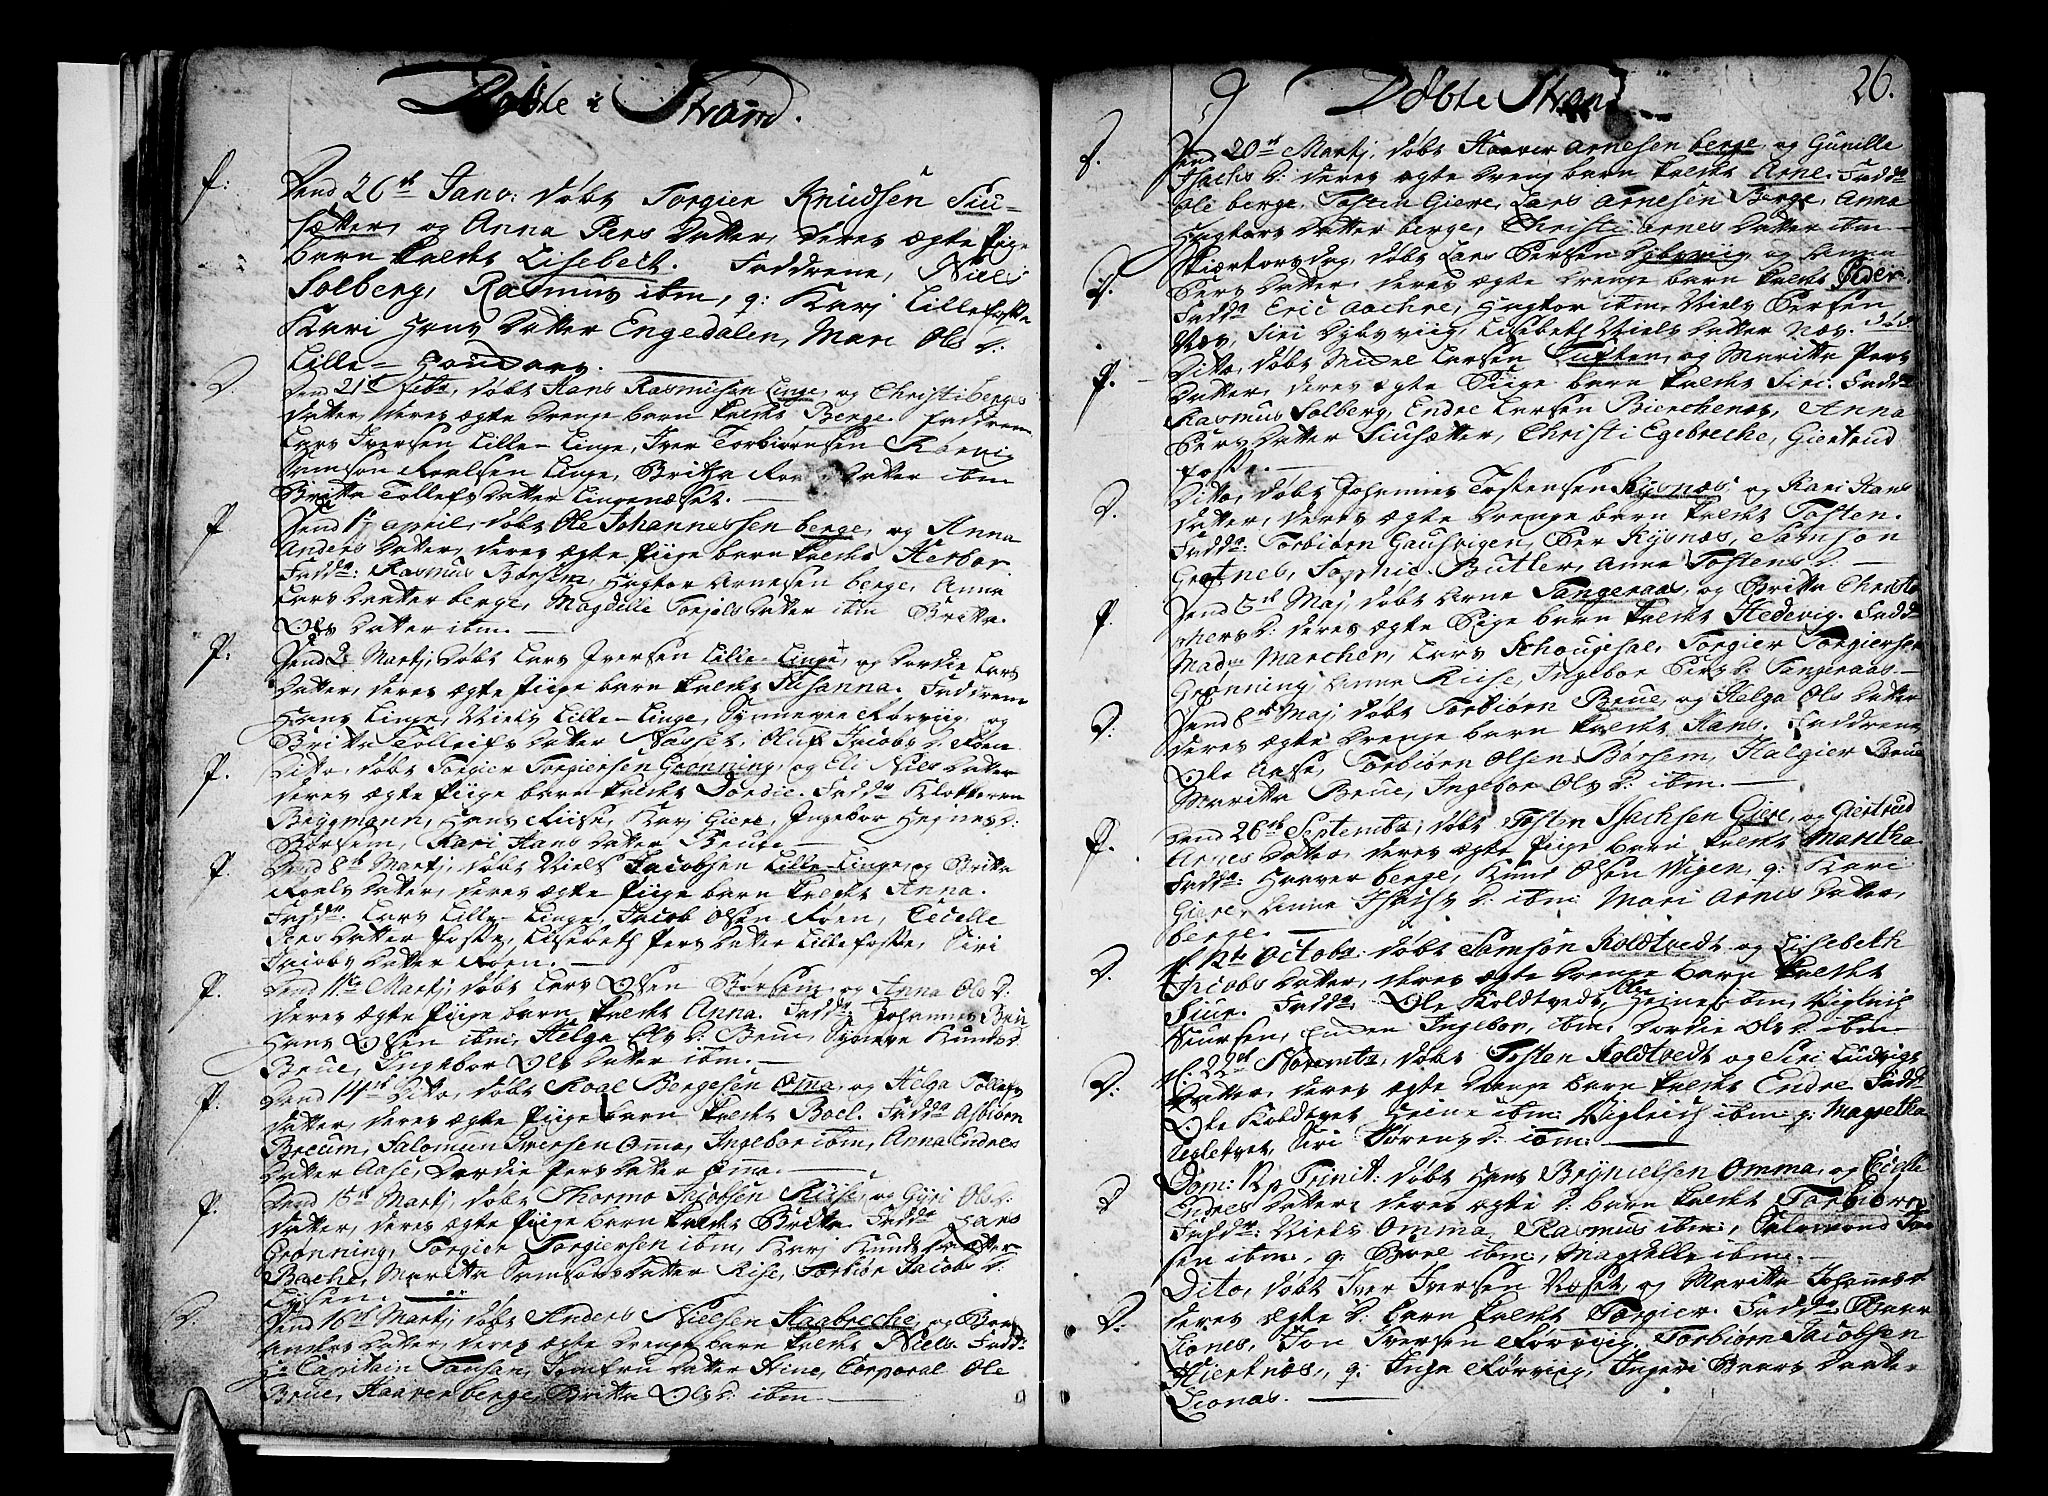 Døbte i Strand.
P. Dend 26de Janv: døbt Torgier Knudsen Siu-
sætter, og Anna Pers datter, deres ægte Pige
barn kaldet Lisebeth. Faddrene, Niels
Solberg, Rasmus ibm, q: Karj Lillefosse
Kari Hans datter Engedalen, Mari Ols D:
Lille-
D. Dend 21de Feb: døbt Hans Rasmusen Linge, og Christi berges
datter, deres ægte drenge barn kaldet Berge. Faddrene
Lars Iversen Lille-Linge, Iver Torbiørnsen Rørvig
Samson Roalsen Linge, Britha datter ibm
Britta Tollefs datter Lingenæset.
P. Dend 17 april, døbt Ole Johannessen berge, og Anna
Anders datter, deres ægte Piige barn kaldet Herbor
Fadd: Rasmus Børsem, Hagtor Arnesen berge, Anna
Lars datter berge, Magdelle Torjels datter ibm Britta
Ols datter ibm.
P. Dend 2 Martj, døbt Lars Iversen Lille-Linge, og Dordie Lars
datter, deres ægte Piige barn kaldet Susanna. Faddrene
Hans Linge, Niels Lille-Linge, Synnevie Rørvig, og
Britta Tolleifs datter Næset, Oluf Jacobs D. Røen
P. Dito, døbt Torgier Torgiersen Grønning, og Eli Niels datter
deres ægte Piige barn kaldet Dordie. Fadd: Klokkeren
Bergmann, Hans Riise, Karj Giere, Ingebor Hejnes D:
Børsem, Kari Hans datter Breue
P. Dend 8de Martj, døbt Niels Jacobsen Lille-Linge, og Britta
Roals datter, deres ægte Piige barn kaldet Anna.
Fadd: Lars Lille-Linge, Jacob Olsen Røen, Cecelle
Pers datter fosse, Lisebeth Pers datter Lillefosse, Siri
Jacobs datter Røen.
P. Dend 11te Martj, døbt Lars Olsen Børsem, og Anna Ols D:
deres ægte Piige barn kaldet Anna. Fadd: Johannes Breu
Hans Olsen ibm, Helga Ols D: Breu, Syneve Knuds D.
Breue, Ingebor Ols datter ibm.
P. Dend 14de Dito, døbt Roal Bergesen Oma, og Helga Tollefs
datter, deres ægte Piige barn kaldet Boel. Fadd: Asbiørn
Breum, Salomon Iversen Oma, Ingebor ibm, Anna Endres
datter Aase, Dordie Pers datter Oma.
P. Dend 15de Martj, døbt Thormo Jacobsen Riise, og Gyri Ols D:
datter, deres ægte Piige barn kaldet Britta. Fadd: Hans
Grønning, Torgier Torgiersen ibm, Karj Knuds datter
Bache, Maritta Samsons datter Rise, Torbiør Jacobs D:
D. Dend 16de Martj, døbt Anders Nielsen Haabreche, og Boel
Anders datter, deres ægte drenge barn kaldet Niels. Fadd:
Hr Capitain Tausan, Jomfru datter Aine, Corporal Ole
Breue, Haaver berge, Britta Ols D: ibm

Døbte Strand 26.
D. Dend 20de Martj, døbt Haaver Arnesen berge, og Gunille
Isachs D: deres ægte dreng barn kaldet Arne. Fadd:
Ole berge, Tosten Giere, Lars Arnesen Berge, Anna
Hagtors datter berge, Christi Arnes datter ibm
D. Skiærtorsdag, døbt Lars Persen Dybvig, og Anna
Pers datter, deres ægte drenge barn kaldet Peder.
Fadd: Eric Aachre, Hagtor ibm. Niels Persen
Næs, Siri Dybvig, Lisebeth Niels datter Næs.
P. Dito, døbt Michel Larsen Tuften, og Maritta Pers
datter, deres ægte Piige barn kaldet Siri. Fadd:
Rasmus Solberg, Endre Larsen Bierchenes, Anna
Pers datter Siusætter, Christi Egebreche, Giertrud
fosse.
D. Dito, døbt Johannes Tostensen Rysnæs, og Kari Hans
datter, deres ægte drenge barn kaldet Tosten.
Fadd: Torbiørn Gausvigen, Per Rysnæs, Samson
Grotnes, Sophie Butler, Anna Tostens D:
P. Dend 5de Maj, døbt Arne Tangeraas, og Britta Christo
phers D: deres ægte Pige barn kaldet Hedevig. Fadd:
Mad: Marcher, Lars Schougsdal, Torgier Torgiersen
Grønning, Anna Riise, Ingebor Pers D: Tangeraas
D. Dend 8de Maj, døbt Torbiørn Breue, og Helga Ols datter
deres ægte drenge barn kaldet Hans. Faddrene
Ole Aase, Torbiørn Olsen Børsem, Halgier Breue
Maritta Breue, Ingebor Ols D: ibm.
P. Dend 26de Septembr, døbt Tosten Isachsen Giere, og Giertrud
Arnes datter, deres ægte Piige barn kaldet Martha
Fadd: Haaver berge, Knud Olsen Wigen, q: Kari
Giere, Anna Isachs D: ibm: Mari Arnes datter,
berge.
D. d. 12te Octobr: døbt Samson Koldtvedt og Lisebeth
Jacobs datter, deres ægte drenge barn kaldet
Siur. Fadd: Ole Koldtvedt, Heine ibm, Viglich
Siursen, Enken Ingebor, ibm. Dordie Ols D: ibm
D. d. 22de Novembr, døbt Tosten Koldtvedt og Siri Ludvigs
datter, deres ægte drenge barn kaldet Endre Fadd:
Ole Koldtvet, Heine ibm: Viglich ibm: q: Magretha
Siri Sørens D: ibm:
D Dom: Trinit: døbt Hans Brynielsen Omma, og Cicelle
Endres datter, deres ægte D: barn kaldet Torbiørn
Fadd: Niels Omma, Rasmus ibm:, Salomond
sen ibm:, q: Boel ibm:, Magdelle ibm:
D: Dito, døbt Iver Iversen Næset, og Maritta Johannes D
deres ægte D: barn kaldet Torgier. Fadd: Baar
Lionæs, Jon Iversen Rørvig, Torbiørn Jacobsen
Hiertnæs, q: Inga Rørvig, Ingeri Baars datter
Lionas.